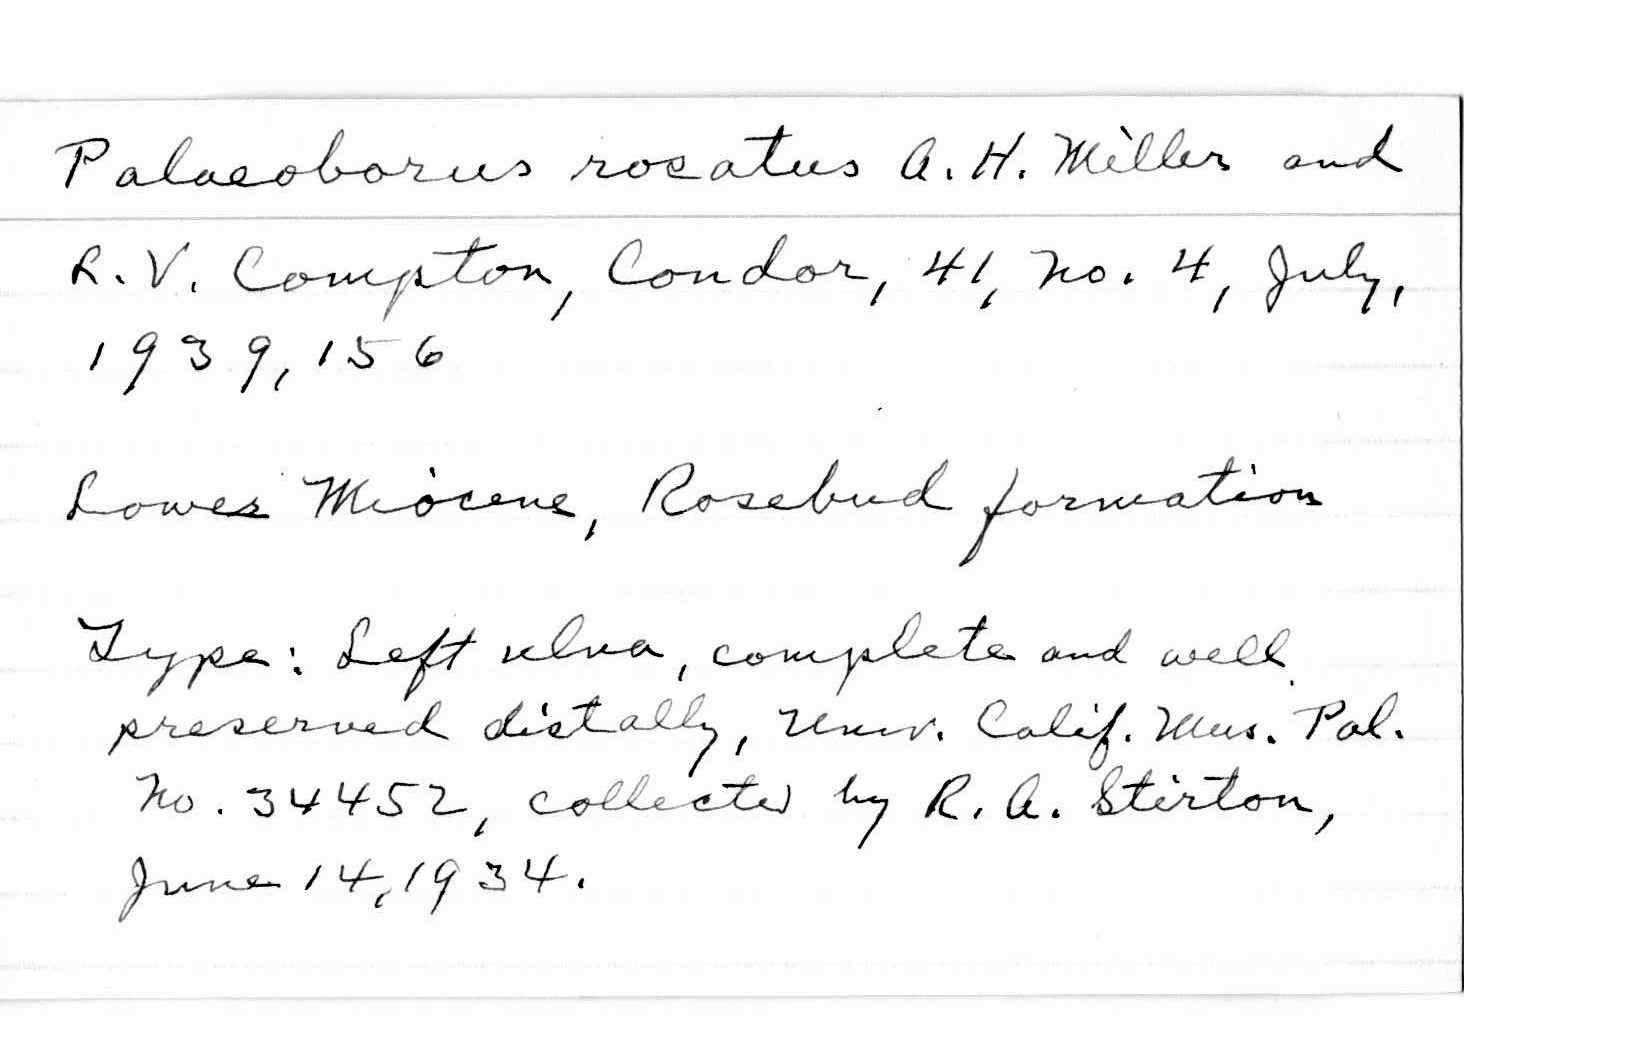 Palaeoborus rosatus A. H. Miller and
R. V. Compton, Condor, 41, no. 4, July,
1939, 156
Lower Miocene, Rosebud formation
Type: Left ulna, complete and well
preserved distally, Univ. Calif. Mus. Pal.
No. 34452, collected by R. A. Stirton,
June 14, 1934.